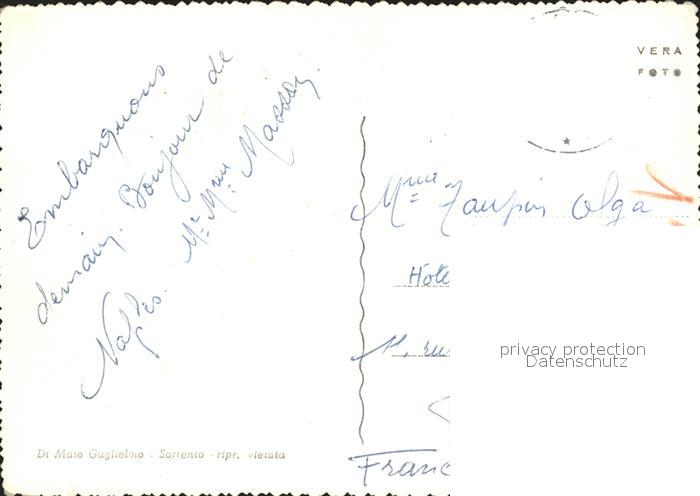 Embarquons
demain. Bonjour de
Naples. Mr Mme Masson.
VERA
FOTO
Mme Taupin Olga
Hôte
rue
privacy protection
Datenschutz
Franc
Di Maio Guglielmo - Sorrento - ripr. vietata